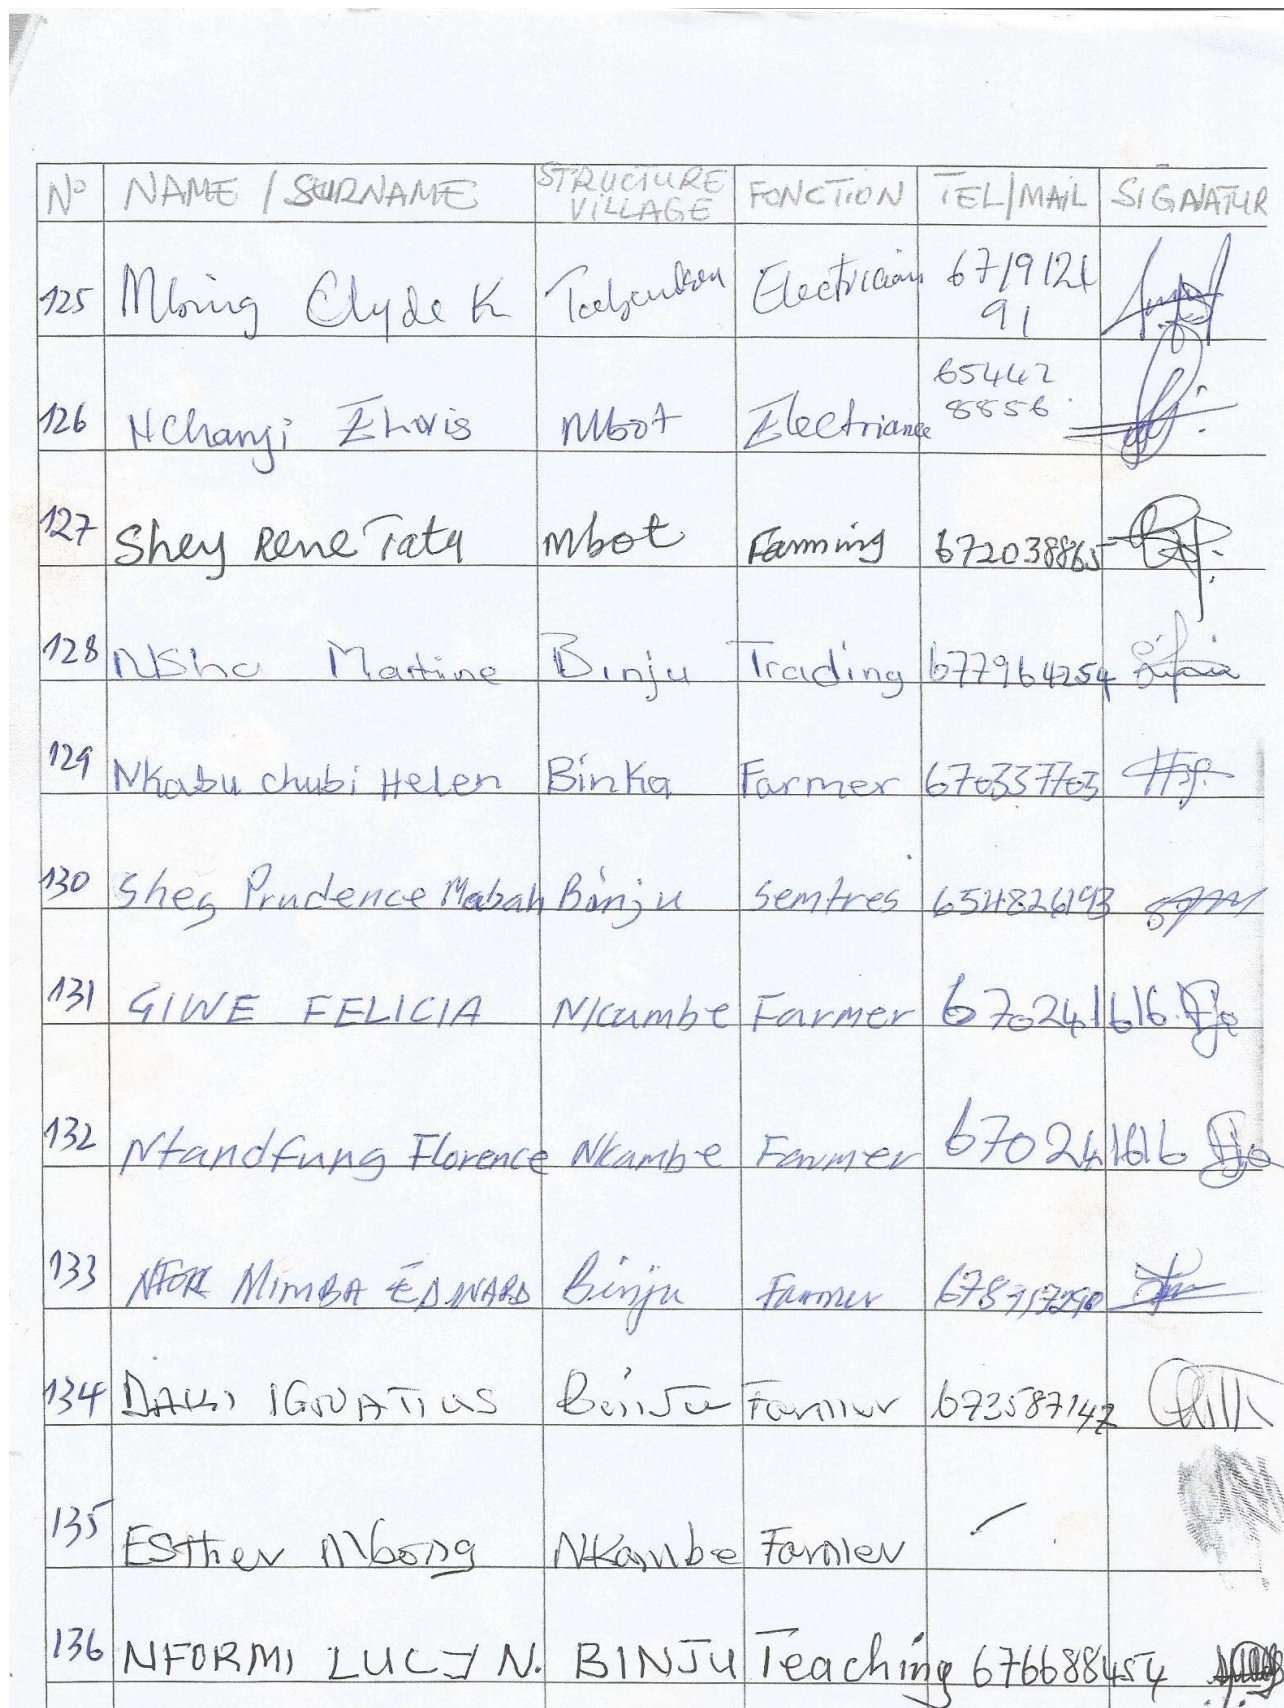 N° NAME / SURNAME STRUCTURE VILLAGE FONCTION TEL/MAIL SIGNATUR
125 Mbing Clyde K Electrician 6719121 91
126 NChanji Mbot Electriance 65442 8856
127 Shey Rene Tata Mbot Farming 672038865
128 NSho Martine Binju Trading 677964254
129 Nkabu chubi Helen Binka Farmer 670337703
130 Shey Prudence Mabah Binju Semtres 654826193
131 GIWE FELICIA Nkambe Farmer 670241616
132 Ntandfung Florence Nkambe Farmer 670241616
133 NFOR MIMBA EDWARD Binju Farmer
134 IGNATIUS Binju Farmer 673587142
135 ESther Mbong NKambe Farmer /
136 NFORMI LUCY N. BINJU Teaching 676688454